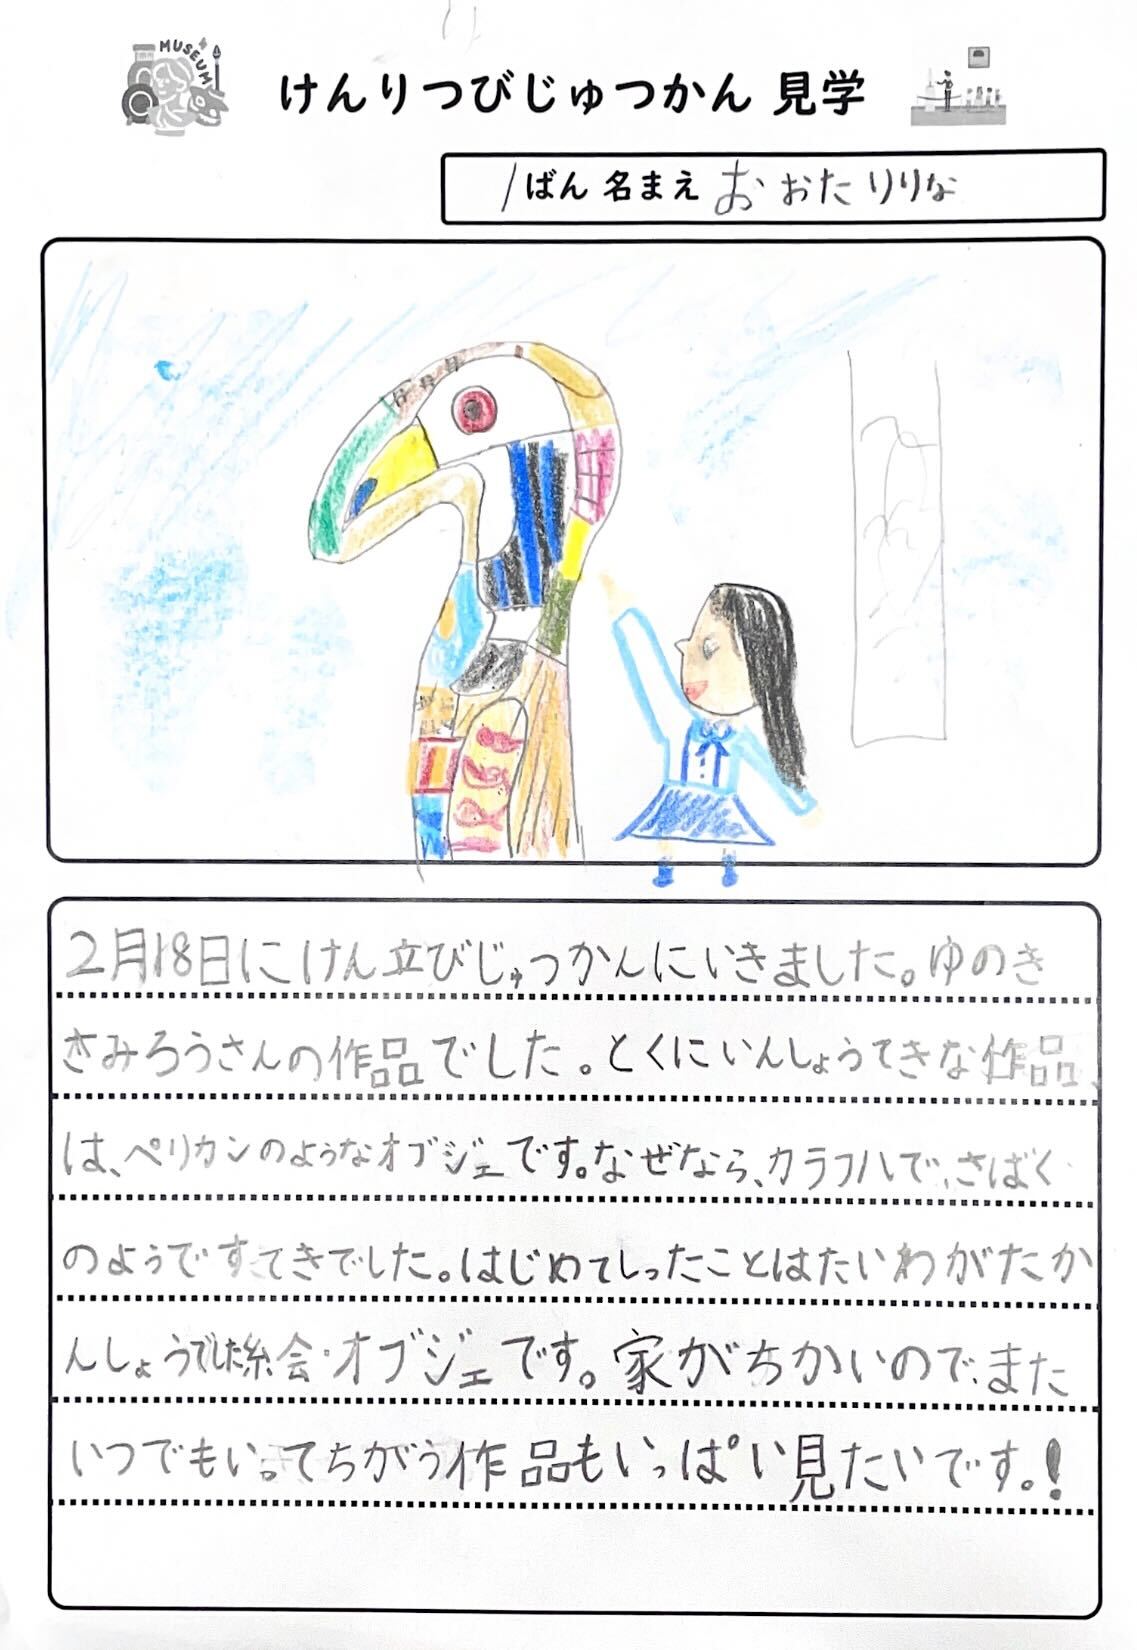 MUSEUM
けんりつびじゅつかん 見学
1ばん 名まえ おおたりりな
2月18日にけん立びじゅつかんにいきました。ゆのき
さみろうさんの作品でした。とくにいんしょうてきな作品
は、ペリカンのようなオブジェです。なぜなら、カラフルで、さばく
のようですてきでした。はじめてしったことはたいわがたか
んしょうでした絵・オブジェです。家がちかいので、また
いつでもいってちがう作品もいっぱい見たいです。!